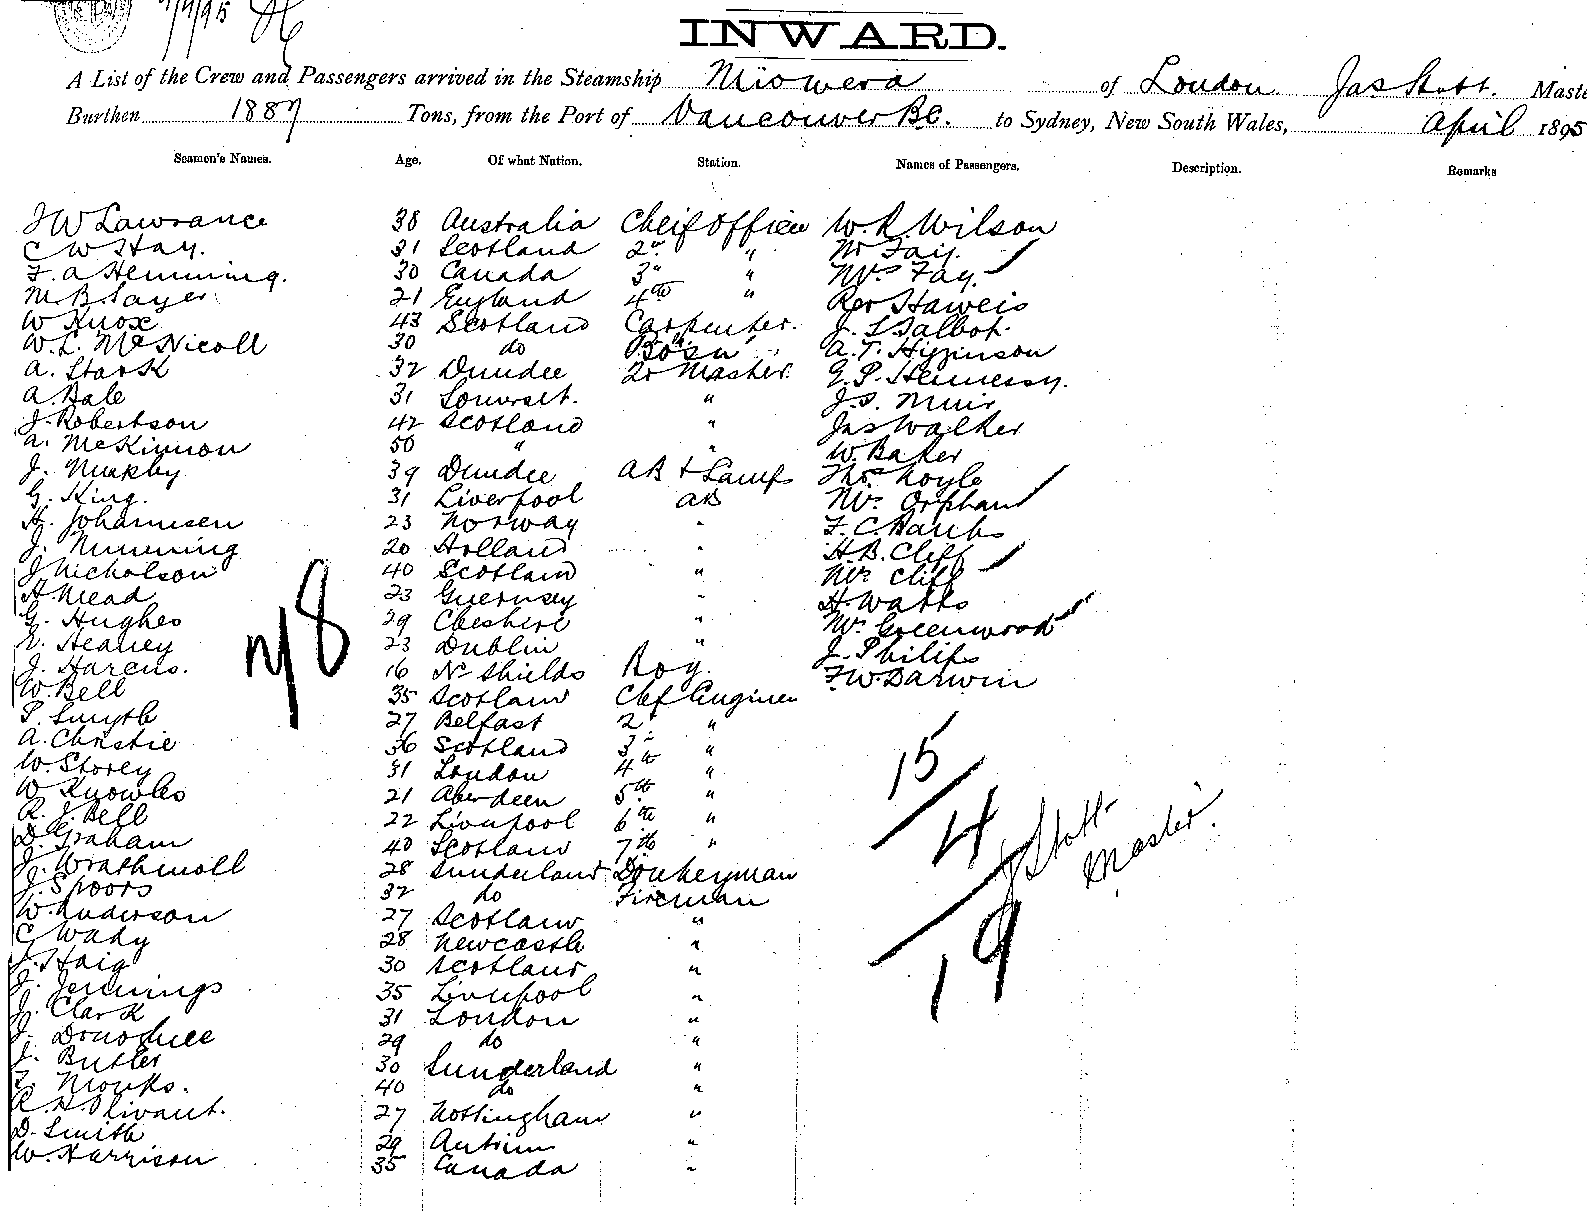 7/4/95
INWARD.
A List of the Crew and Passengers arrived in the Steamship Miowera of London. Jas Stott. Maste
Burthen 1887 Tons, from the Port of Vancouver B.C. to Sydney, New South Wales, April 1895
Seamen's Names. Age. Of what Nation. Station. Names of Passengers. Description. Remarks
J W Lawrance 38 Australia Cheif Officer W. R. Wilson
C W Hay. 31 Scotland 2nd " Mr Fay.
F. A Hemming. 30 Canada 3rd " Mrs Fay.
M B Sayer 21 England 4th " Rev Haweis
W Knox 43 Scotland Carpenter. J. S Talbot.
W. L. McNicoll 30 do Bo'sn " A. T. Higginson
A. Stark 32 Dundee Qr Master. G. P. Hennessy.
A. Bale 31 Somerset. " J. S. Muir
J. Robertson 42 Scotland " Jas Walker
A. McKinnon 50 " " W. Baker
J. Murphy 39 Dundee AB & Lamps Thos Noyle
G. King. 31 Liverpool AB Mrs Orphan
H. Johannesen 23 Norway " F. C.
J. 20 Holland " H. B. Cliff
J Nicholson 40 Scotland " Mrs Cliff
H. Mead 23 Guernsey " H. Watts
G. Hughes 29 Cheshire " Mrs Greenwood
Heaney 23 Dublin " J. Philips
J. Harcus. 16 No Shields Boy. F. W. Darwin
W. Bell 35 Scotland Chf Engineer
P. Smyth 27 Belfast 2nd "
A. Christie 36 Scotland 3rd "
W. Storey 31 London 4th "
W Knowles 21 Aberdeen 5th "
R. J. Bell 22 Liverpool 6th "
D. Graham 40 Scotland 7th "
J. Wrathmoll 28 Sunderland Donkeyman
J. Spoors 32 do Fireman
W. Anderson 27 Scotland "
C Wady 28 Newcastle "
J. Haig 30 Scotland "
J. Jennings 35 Liverpool "
J. Clark 31 London "
J. Donoghue 29 do "
J. Butler 30 Sunderland "
F. Monks. 40 do "
R. H. Olivant. 27 Nottingham "
D. Smith 29 Antrim "
W. Harrison 35 Canada "
15/4/19
J Stott
Master.